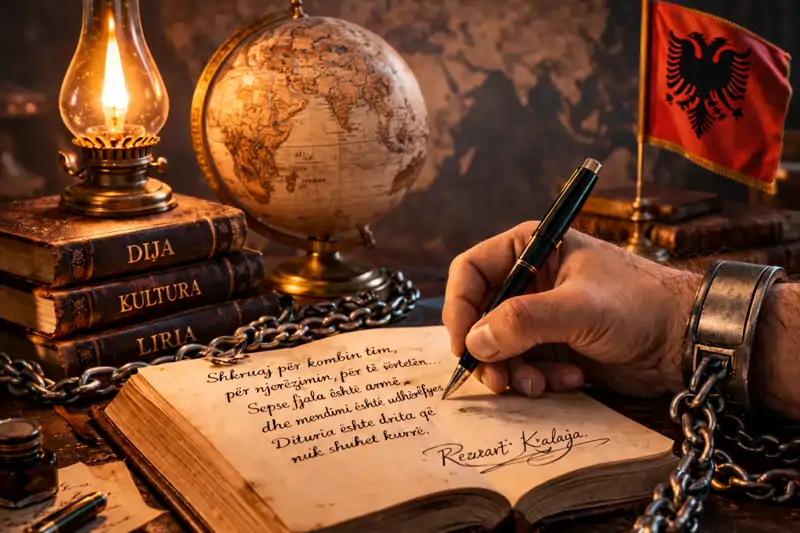 DIJA
KULTURA
LIRIA
Shkruaj për kombin tim,
për njerëzimin, për të vërtetën...
Sepse fjala është armë,
dhe mendimi është udhërëfyes,
Dituria është drita që
nuk shuhet kurrë.
Rezearti Kalaja.